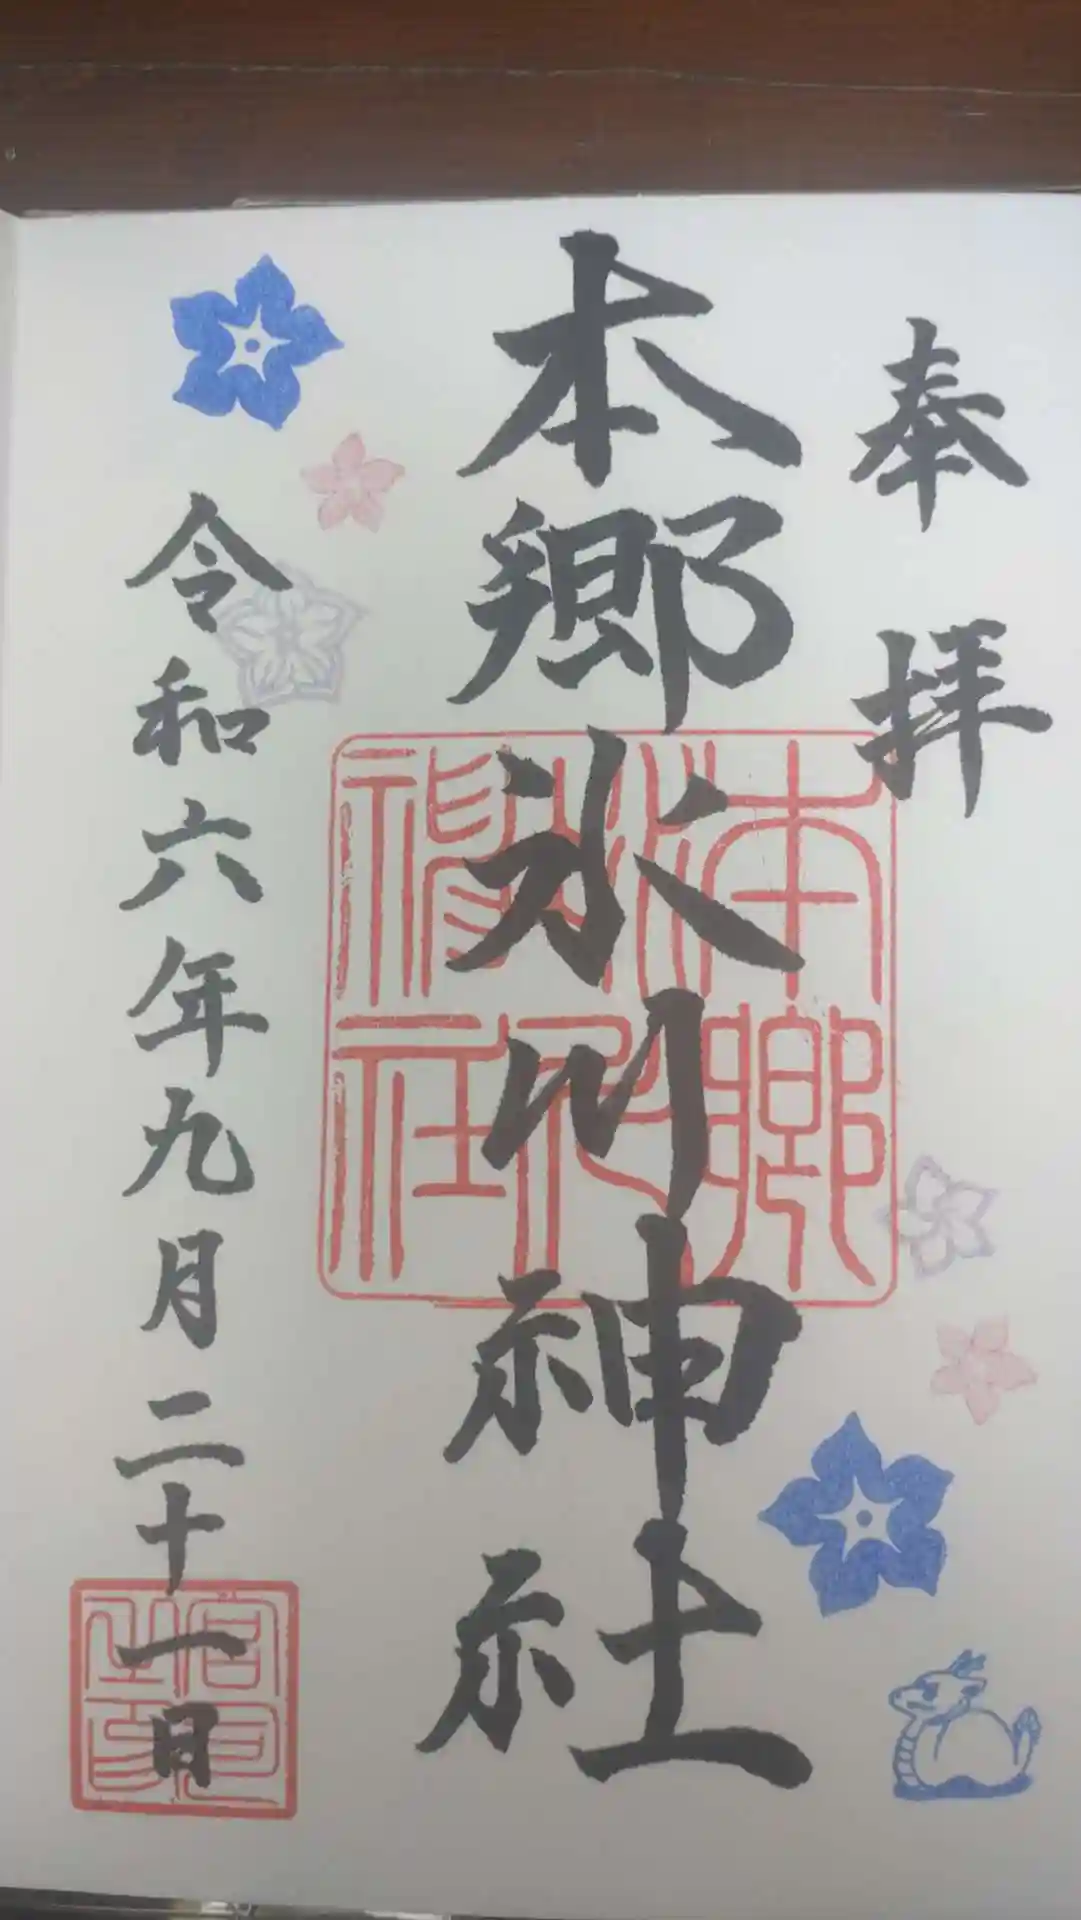 奉拝
本郷氷川神社
本郷氷川神社
令和六年九月二十一日
宮司之印